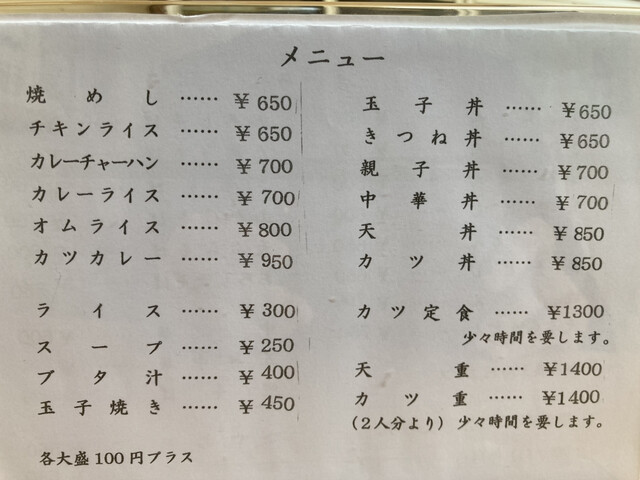 メニュー
焼めし …… ¥650
チキンライス …… ¥650
カレーチャーハン …… ¥700
カレーライス …… ¥700
オムライス …… ¥800
カツカレー …… ¥950
ライス …… ¥300
スープ …… ¥250
ブタ汁 …… ¥400
玉子焼き …… ¥450
各大盛100円プラス
玉子丼 …… ¥650
きつね丼 …… ¥650
親子丼 …… ¥700
中華丼 …… ¥700
天丼 …… ¥850
カツ丼 …… ¥850
カツ定食 …… ¥1300
少々時間を要します。
天重 …… ¥1400
カツ重 …… ¥1400
(2人分より) 少々時間を要します。